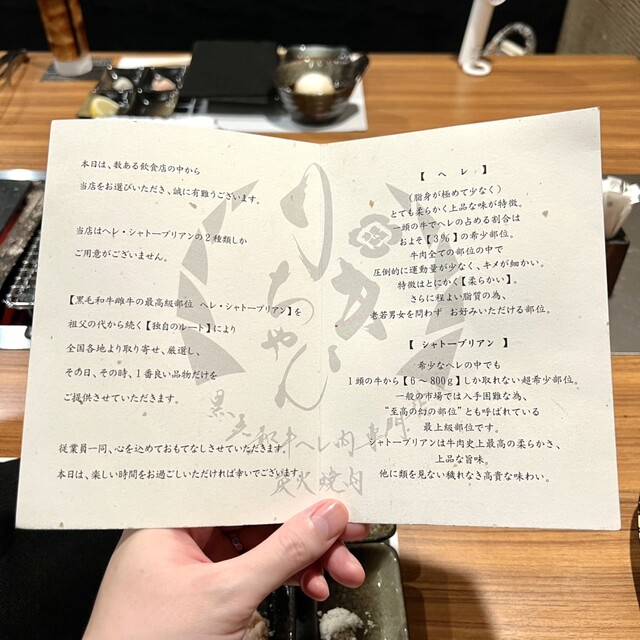 本日は、数ある飲食店の中から
当店をお選びいただき、誠に有難うございます。
当店はヘレ・シャトーブリアンの2種類しか
ご用意がございません。
【黒毛和牛雌牛の最高級部位 ヘレ・シャトーブリアン】を
祖父の代から続く【独自のルート】により
全国各地より取り寄せ、厳選し、
その日、その時、1番良い品物だけを
ご提供させていただきます。
従業員一同、心を込めておもてなしさせていただきます。
本日は、楽しい時間をお過ごしいただければ幸いでございます。
【 ヘ レ 】
(脂身が極めて少なく)
とても柔らかく上品な味が特徴。
一頭の牛でヘレの占める割合は
およそ【3%】の希少部位。
牛肉全ての部位の中で
圧倒的に運動量が少なく、キメが細かい。
特徴はとにかく【柔らかい】。
さらに程よい脂質の為、
老若男女を問わず お好みいただける部位。
【 シャトーブリアン 】
希少なヘレの中でも
1頭の牛から【6～800g】しか取れない超希少部位。
一般の市場では入手困難な為、
“至高の幻の部位”とも呼ばれている
最上級部位です。
シャトーブリアンは牛肉史上最高の柔らかさ、
上品な旨味。
他に類を見ない穢れなき高貴な味わい。
炭火焼肉